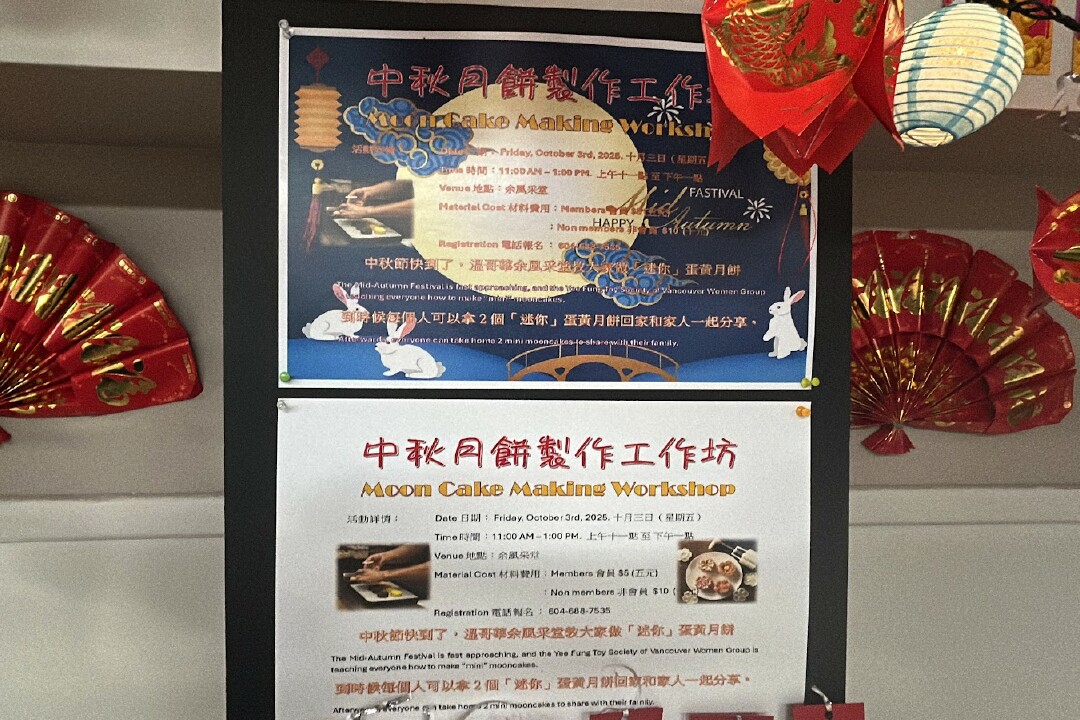 中秋月餅製作工作
Moon Cake Making Worksh
活動詳情： Date 日期： Friday, October 3rd, 2025. 十月三日（星期五
Time 時間：11:00 AM – 1:00 PM. 上午十一點 至 下午一點
Venue 地點：余風采堂
Material Cost 材料費用：Members 會員
FASTIVAL
Mid
HAPPY Autumn
: Non members 非會員 $10
Registration 電話報名： 604-688-7535
中秋節快到了，溫哥華余風采堂教大家做「迷你」蛋黃月餅
The Mid-Autumn Festival is fast approaching, and the Yee Fung Toy Society of Vancouver Women Group
is teaching everyone how to make "mini" mooncakes.
到時候每個人可以拿 2 個「迷你」蛋黃月餅回家和家人一起分享。
Afterwards, everyone can take home 2 mini mooncakes to share with their family.
中秋月餅製作工作坊
Moon Cake Making Workshop
活動詳情： Date 日期： Friday, October 3rd, 2025. 十月三日（星期五）
Time 時間：11:00 AM – 1:00 PM. 上午十一點 至 下午一點
Venue 地點：余風采堂
Material Cost 材料費用：Members 會員 $5 (五元)
: Non members 非會員 $10 (
Registration 電話報名： 604-688-7535
中秋節快到了，溫哥華余風采堂教大家做「迷你」蛋黃月餅
The Mid-Autumn Festival is fast approaching, and the Yee Fung Toy Society of Vancouver Women Group is
teaching everyone how to make "mini" mooncakes.
到時候每個人可以拿 2 個「迷你」蛋黃月餅回家和家人一起分享。
everyone can take home 2 mini mooncakes to share with their family.